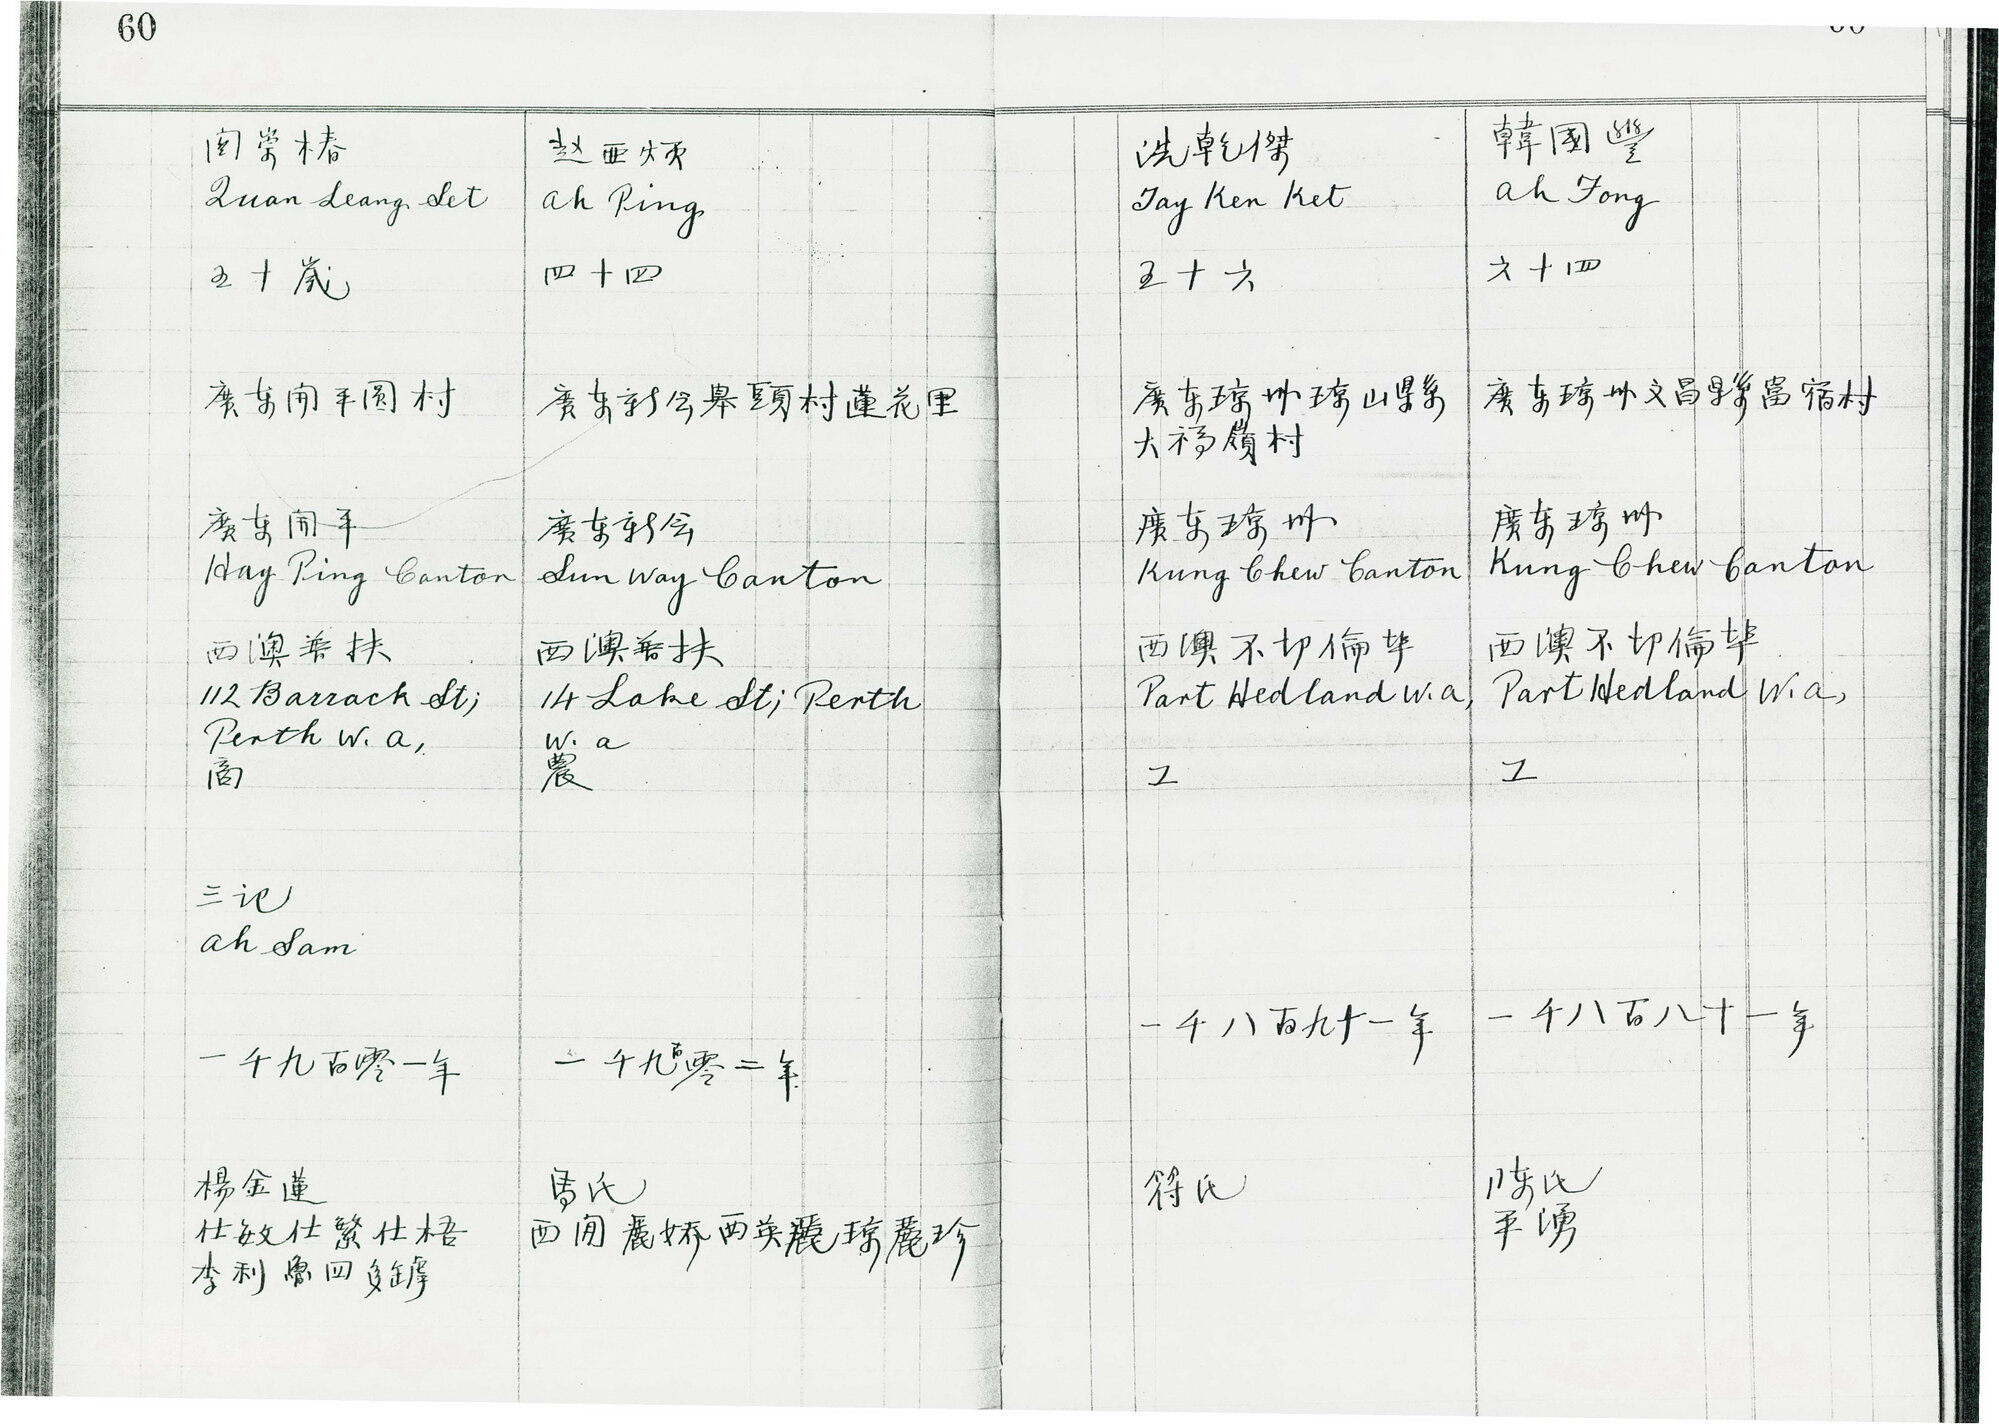 60
関崇椿
Quan Leang Set
五十歲
廣东開平圓村
廣东開平
Hay Ping Canton
西澳普扶
112 Barrack St;
Perth W.a,
商
三记
ah Sam
一千九百零一年
楊金蓮
仕敏仕繁仕梧
李利 四
赵亚炳
ah Ping
四十四
廣东新会舉頭村蓮花里
廣东新会
Sun Way Canton
西澳普扶
14 Lake St; Perth
W.a
農
一千九百零二年
馬氏
西開麗嬌西英麗琼麗珍
冼乾傑
Tay Ken Ket
五十六
廣东琼州琼山縣
大福嶺村
廣东琼州
Kung Chew Canton
西澳不切倫畢
Part Hedland W.a,
工
一千八百九十一年
符氏
韓國豐
ah Fong
六十四
廣东琼州文昌縣富宿村
廣东琼州
Kung Chew Canton
西澳不切倫畢
Part Hedland W.a,
工
一千八百八十一年
陈氏
平湧